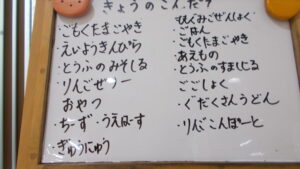 きょうのこんだて
・ごもくたまごやき
・えいようきんぴら
・とうふのみそしる
・りんごぜりー
おやつ
・ちーず・うえはーす
・ぎゅうにゅう
・ごはん
・ごもくたまごやき
・あえもの
・とうふのすましじる
ごごしょく
・ぐだくさんうどん
・りんごこんぽーと